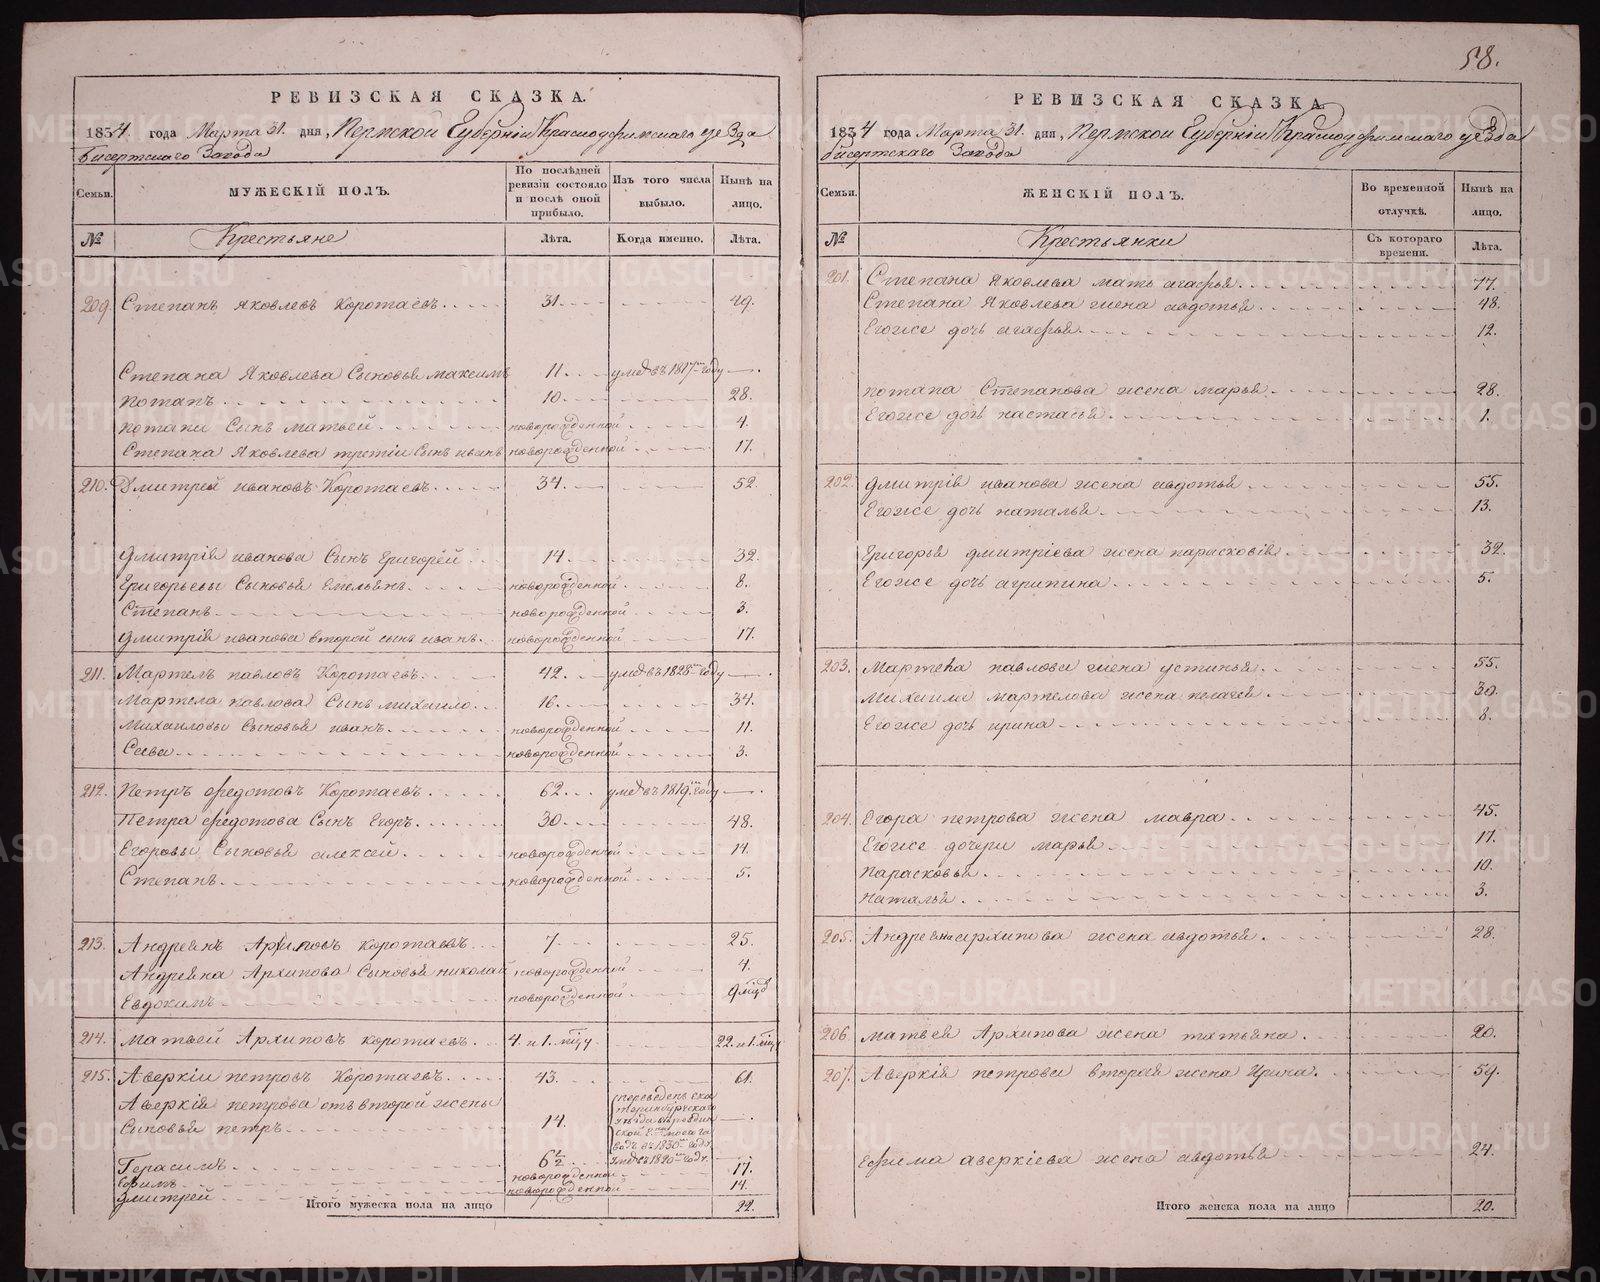 58.
РЕВИЗСКАЯ СКАЗКА.
1834 года Марта 31. дня, Пермской Губернiи Красноуфимскаго уезда
Бисертскаго Завода
Семьи. МУЖЕСКIЙ ПОЛЪ. По послѣдней ревизiи состояло и послѣ оной прибыло. Изъ того числа выбыло. Нынѣ на лицо.
№ Крестьяне Лѣта. Когда именно. Лѣта.
209. Степанъ Яковлевъ Коротаевъ. 31. 49.
Степана Яковлева Сыновья Максимъ 11. умеръ въ 1817м году
Потапъ 10. 28.
Потапа Сынъ Матвей новорожденной 4.
Степана Яковлева третiи Сынъ иванъ новорожденной 17.
210. Дмитрей ивановъ Коротаевъ. 34. 52.
Дмитрiя иванова Сынъ Григорей 14. 32.
Григорьевы Сыновья Емельянъ. новорожденной 8.
Степанъ новорожденной 3.
Дмитрiя иванова второй сынъ иванъ. новорожденной 17.
211. Мартемъ павловъ Коротаевъ. 42. умеръ въ 1828м году
Мартела павлова Сынъ михаило 16. 34.
Михаиловы Сыновья иванъ. новорожденной 11.
Сава новорожденной 3.
212. Петръ федотовъ Коротаевъ. 62. умеръ въ 1819м году
Петра федотова Сынъ Егоръ. 30. 48.
Егоровы Сыновья алексей. новорожденной 14.
Степанъ. новорожденной 5.
213. Андреянъ Архиповъ Коротаевъ 7. 25.
Андреяна Архипова Сыновья николай новорожденной 4.
Евдокимъ новорожденной 9 мѣцъ
214. Матвей Архиповъ Коротаевъ. 4. и 1. мѣцу 22. и 1. мѣцу
215. Аверкiи петровъ Коротаевъ. 43. 61.
Аверкiя петрова отъ второй жены
Сыновья петръ 14. переведенъ ека
теринбургскаго
уезда въ
въ 1830м году.
Герасимъ 6½ умеръ въ 1820м году.
Ефимъ новорожденной 17.
Дмитрей новорожденной 14.
Итого мужеска пола на лицо 22.
РЕВИЗСКАЯ СКАЗКА
1834 года Марта 31. дня, Пермской Губернiи Красноуфимскаго уезда
Бисертскаго Завода
Семьи. ЖЕНСКIЙ ПОЛЪ. Во временной отлучкѣ. Нынѣ на лицо.
№ Крестьянки Съ котораго времени. Лѣта.
201. Степана Яковлева мать агафья 77.
Степана Яковлева жена авдотья 48.
Егоже дочь агафья 12.
потапа Степанова жена марья 28.
Егоже дочь настасья. 1.
202. Дмитрiя иванова жена авдотья 55.
Егоже дочь наталья. 13.
Григорья дмитрiева жена парасковiя 32.
Егоже дочь агрипина 5.
203. Мартела павлова жена устинья. 55.
Михаила мартелова жена пелагея 30.
Егоже дочь ирина 8.
204. Егора петрова жена мавра 45.
Егоже дочери марья 17.
Парасковья 10.
наталья 3.
205. Андреяна архипова жена авдотья. 28.
206. матвея Архипова жена татьяна. 20.
207. Аверкiя петрова вторая жена Ирина. 59.
Ефима аверкiева жена авдотья 24.
Итого женска пола на лицо 20.
METRIKI.GASO-URAL.RU